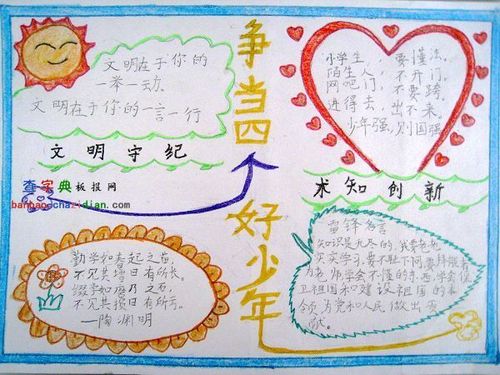 争当四个好少年
文明在于你的
一举一动。
文明在于你的一言一行
文明守纪
查字典板报网
banbao.chazidian.com
小学生，要懂法。
陌生人，不开门，
网吧门，不要跨，
进得去，出不来。
少年强，则国强
求知创新
勤学如春起之苗，
不见其增日有所长。
辍学如磨刀之石，
不见其损日有所亏。
——陶渊明
雷锋名言
知识是无尽的，我要老老
实实学习，要不耻下问，要拜能者
为老师，学会不懂的东西，学会保
卫祖国和建设祖国的本
领，为党和人民做出贡
献。